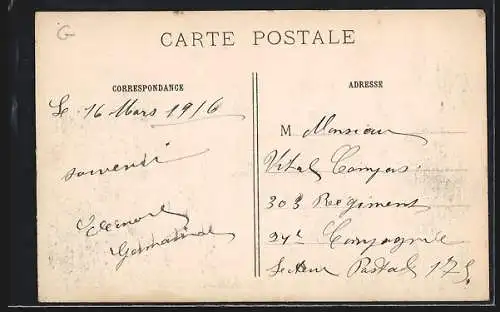 G
CARTE POSTALE
CORRESPONDANCE
ADRESSE
Le 16 Mars 1916
souvenir
M Monsieur
Vital Compas
303 Regiment
24e Compagnie
Secteur Postal 175